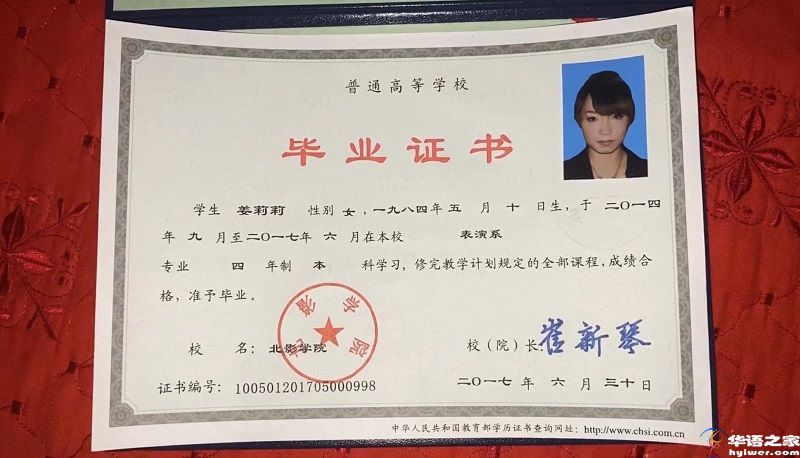 普通高等学校
毕业证书
学生 姜莉莉 性别 女，一九八四年 五 月 十 日生，于 二〇一四
年 九 月至二〇一七年 六 月在本校 表演系
专业 四 年制 本 科学习，修完教学计划规定的全部课程，成绩合
格，准予毕业。
校 名：北影学院 校（院）长：崔新琴
证书编号：100501201705000998 二〇一七 年 六 月 三十 日
中华人民共和国教育部学历证书查询网址：http://www.chsi.com.cn
华语之家
hyiwer.com